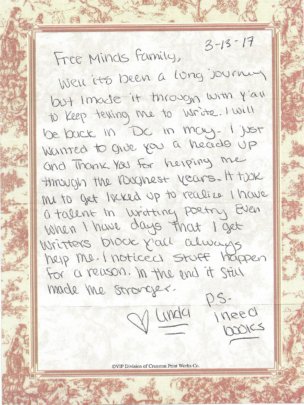 3-13-17
Free Minds Family,
Well its been a long journey
but I made it through with y'all
to keep telling me to write. I will
be back in DC in may. I just
wanted to give you a heads up
and Thank you for helping me
through the roughest years. It took
me to get locked up to realize I have
a talent in writting poetry. Even
when I have days that I get
writters block y'all always
help me. I noticed stuff happen
for a reason. In the end it still
made me stronger.
P.S.
♡ Linda
I need
books
©VIP Division of Common Print Works Co.